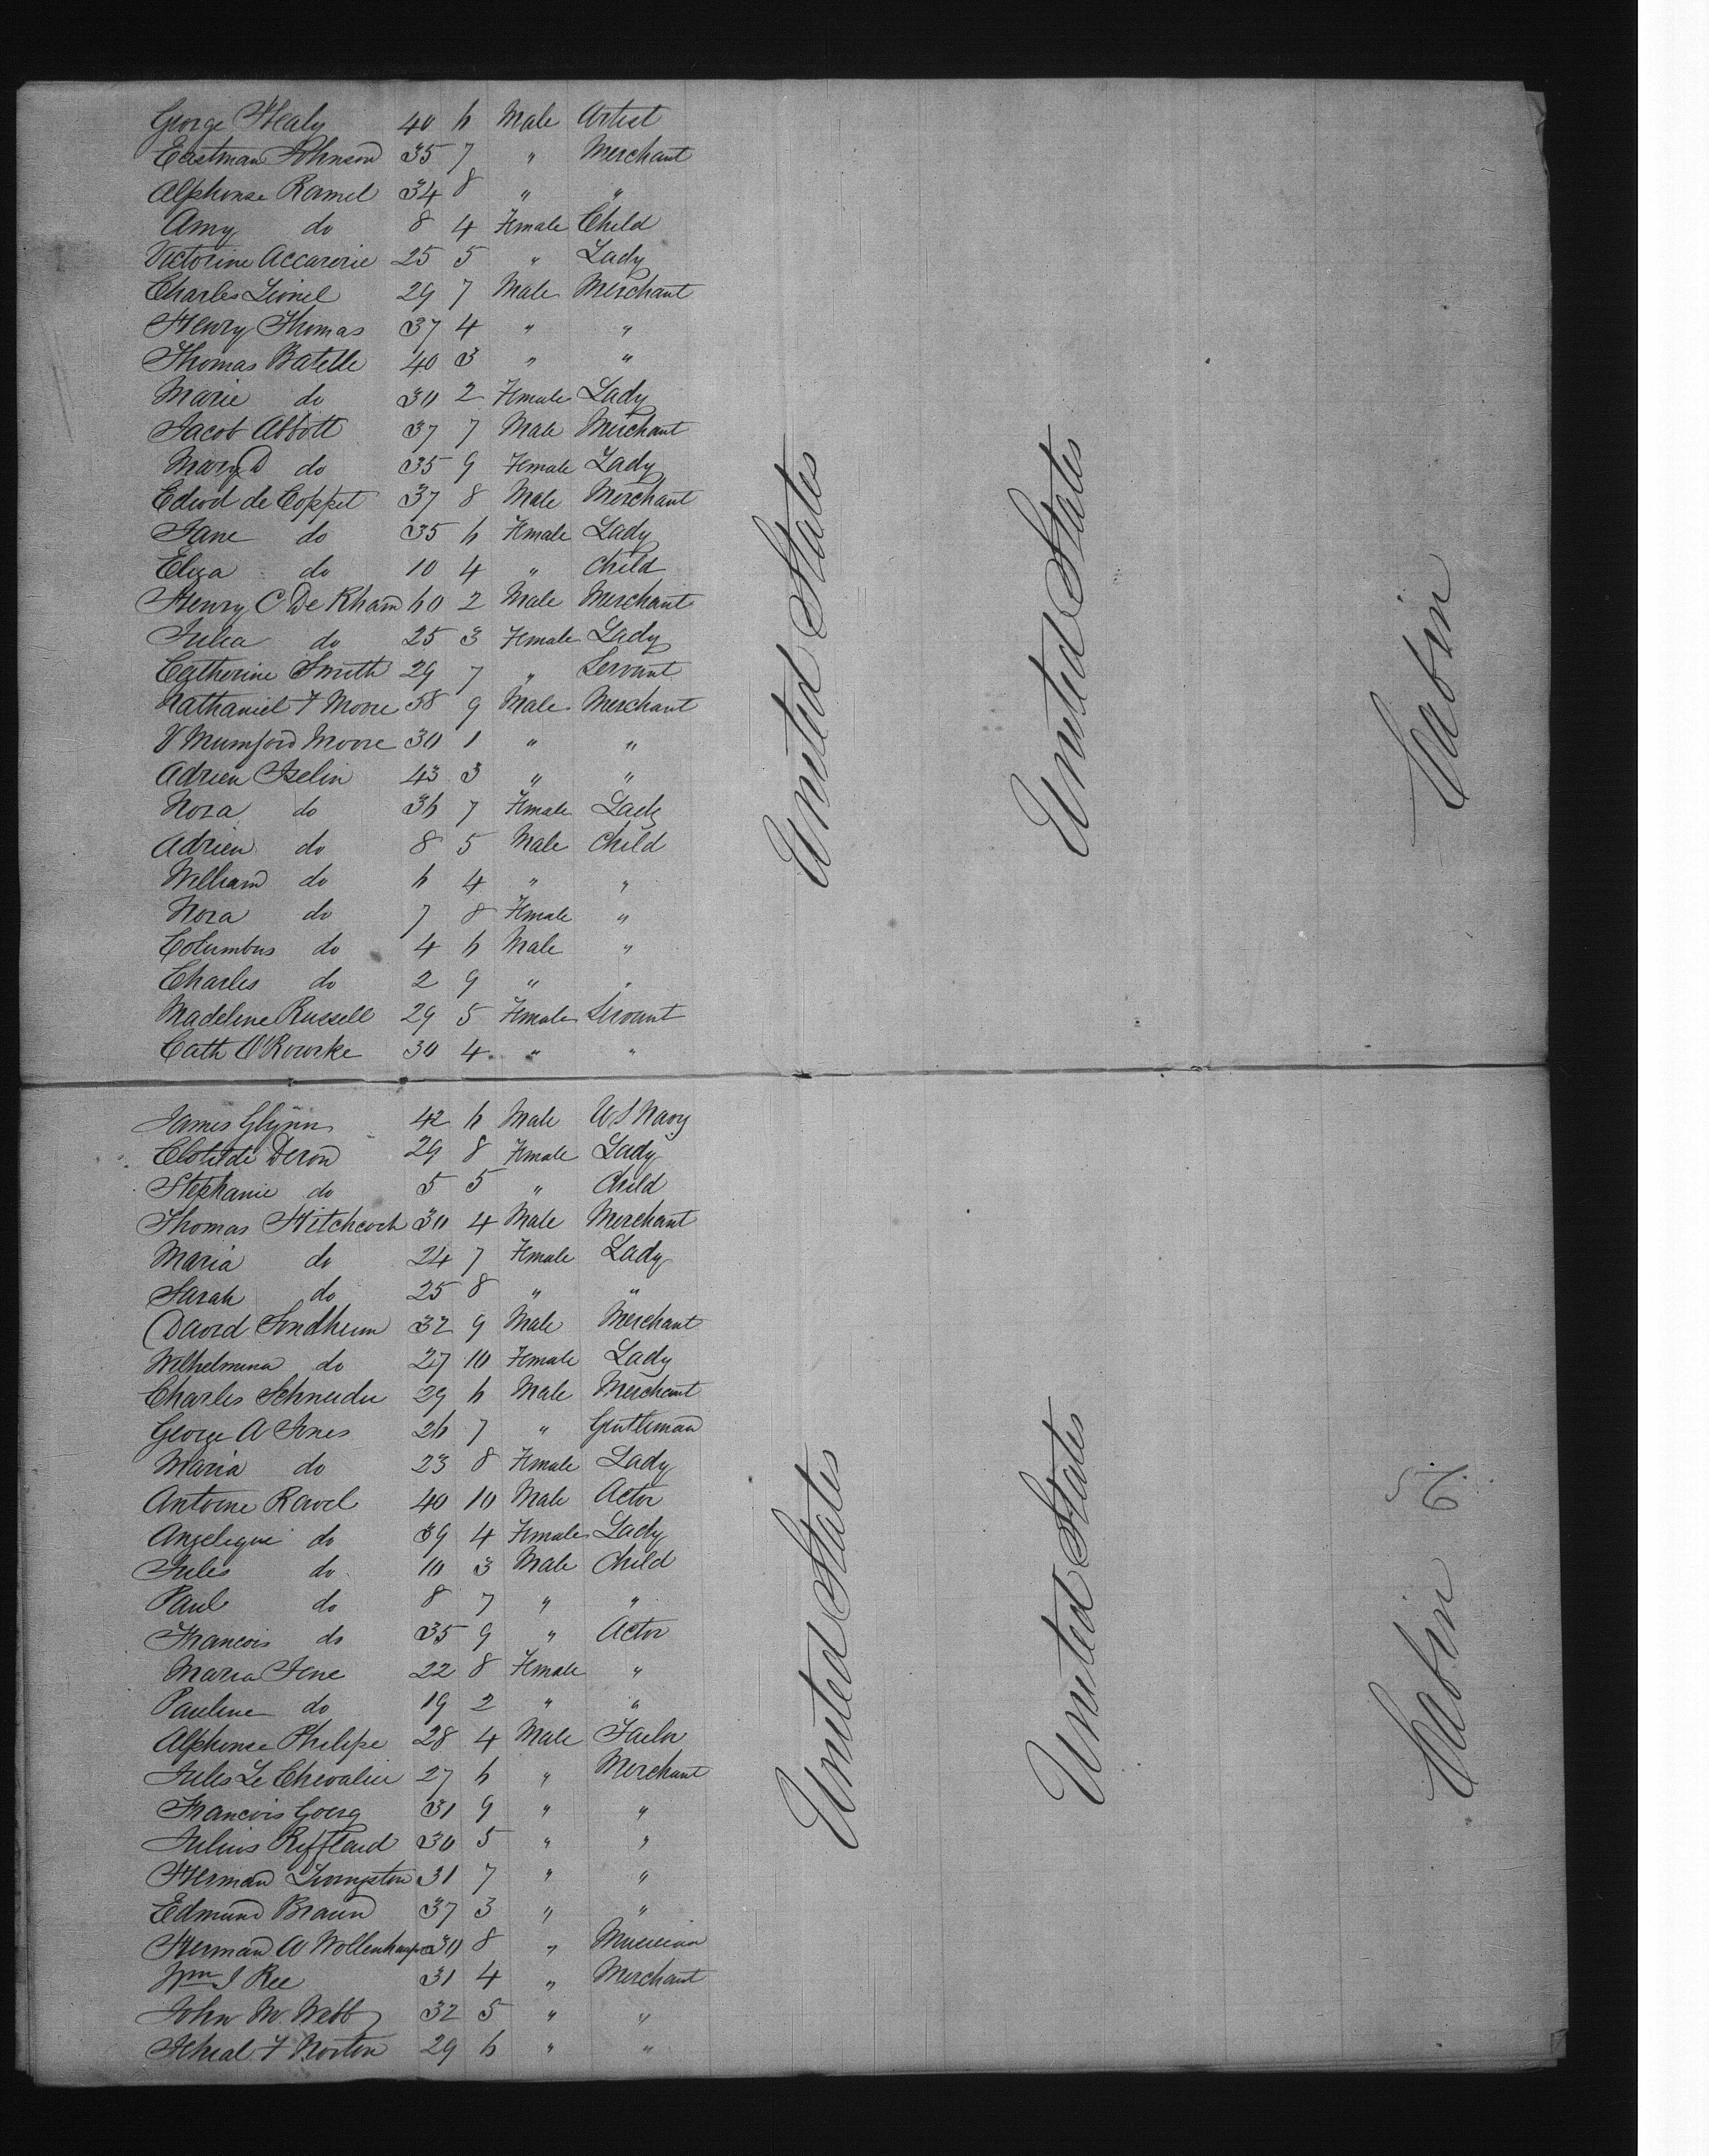 George Healy 40 6 Male Artist
Eastman Johnson 35 7 " Merchant
Alphonse Ramel 34 8 " "
Amy do 8 4 Female Child
Victorine Accarerie 25 5 " Lady
Charles Lionel 29 7 Male Merchant
Henry Thomas 37 4 " "
Thomas Batelle 40 3 " "
Marie do 30 2 Female Lady
Jacob Abbott 37 7 Male Merchant
Mary D do 35 9 Female Lady
Edwd de Coppet 37 8 Male Merchant
Jane do 35 6 Female Lady
Eliza do 10 4 " Child
Henry C De Rham 60 2 Male Merchant
Julia do 25 3 Female Lady
Catherine Smith 29 7 " Servant
Nathaniel F Moore 58 9 Male Merchant
V Mumford Moore 30 1 " "
Adrien Iselin 43 3 " "
Nora do 36 7 Female Lady
Adrien do 8 5 Male Child
William do 6 4 " "
Nora do 7 8 Female "
Columbus do 4 6 Male "
Charles do 2 9 " "
Madeline Russell 29 5 Female Servant
Cath O'Rourke 30 4 " "
United States United States Cabin
James Glynn 42 6 Male U S Navy
Clotilde Deron 29 8 Female Lady
Stephanie do 5 5 " Child
Thomas Hitchcock 30 4 Male Merchant
Maria do 24 7 Female Lady
Sarah do 25 8 " "
David Sondheim 32 9 Male Merchant
Wilhelmina do 27 10 Female Lady
Charles Schneider 29 6 Male Merchant
George A Jones 26 7 " Gentleman
Maria do 23 8 Female Lady
Antoine Ravel 40 10 Male Actor
Angelique do 39 4 Female Lady
Jules do 10 3 Male Child
Paul do 8 7 " "
Francois do 35 9 " Actor
Maria Jene 22 8 Female "
Pauline do 19 2 " "
Alphonse Philipe 28 4 Male Tailor
Jules Le Chevalier 27 6 " Merchant
Francois Goerg 31 9 " "
Julius Rifflard 30 5 " "
Herman Livingston 31 7 " "
Edmund Braun 37 3 " "
Herman A Wollenhaupt 30 8 " Musician
Wm J Ree 31 4 " Merchant
John W. Webb 32 5 " "
F Norton 29 6 " "
United States United States Cabin
56